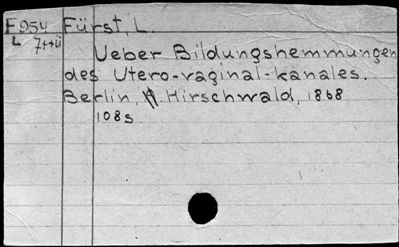 F954 Fürst, L.
L 7++ü
Ueber Bildungshemmungen
des Utero-vaginal-kanales.
Berlin, A. Hirschwald, 1868
108s